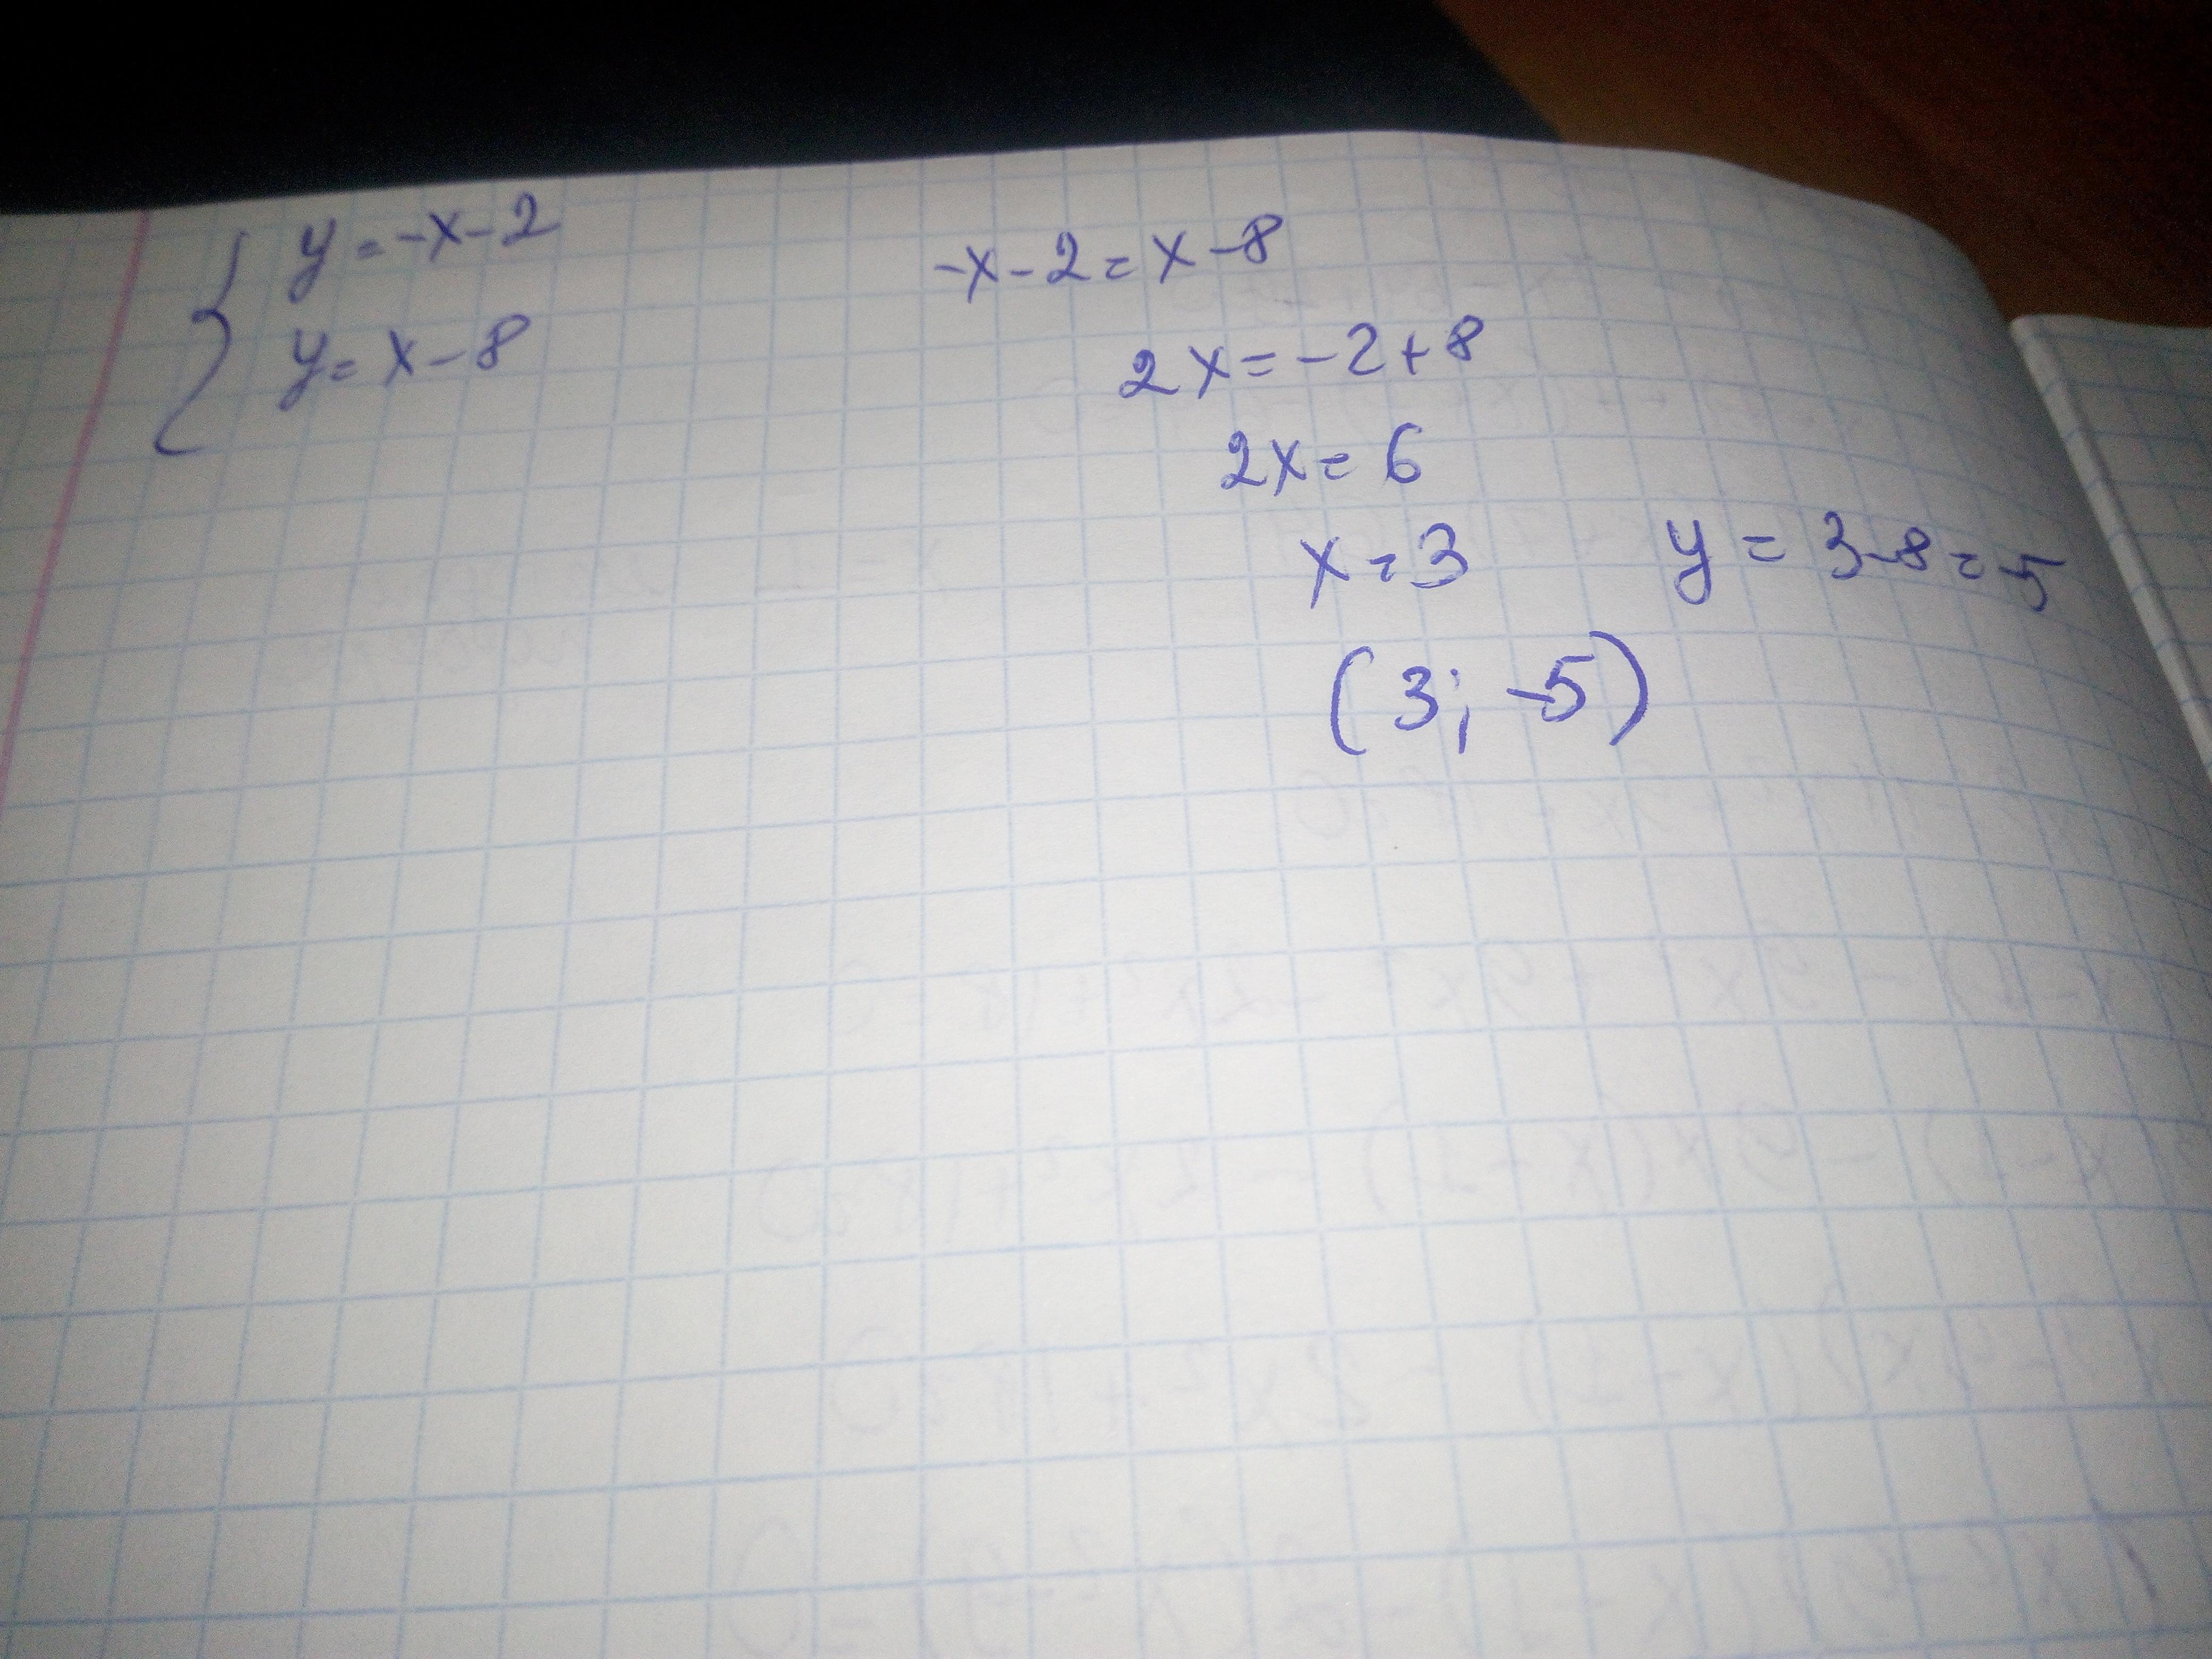 { y = -x - 2
y = x - 8
-x - 2 = x - 8
2x = -2 + 8
2x = 6
x = 3   y = 3 - 8 = -5
(3; -5)